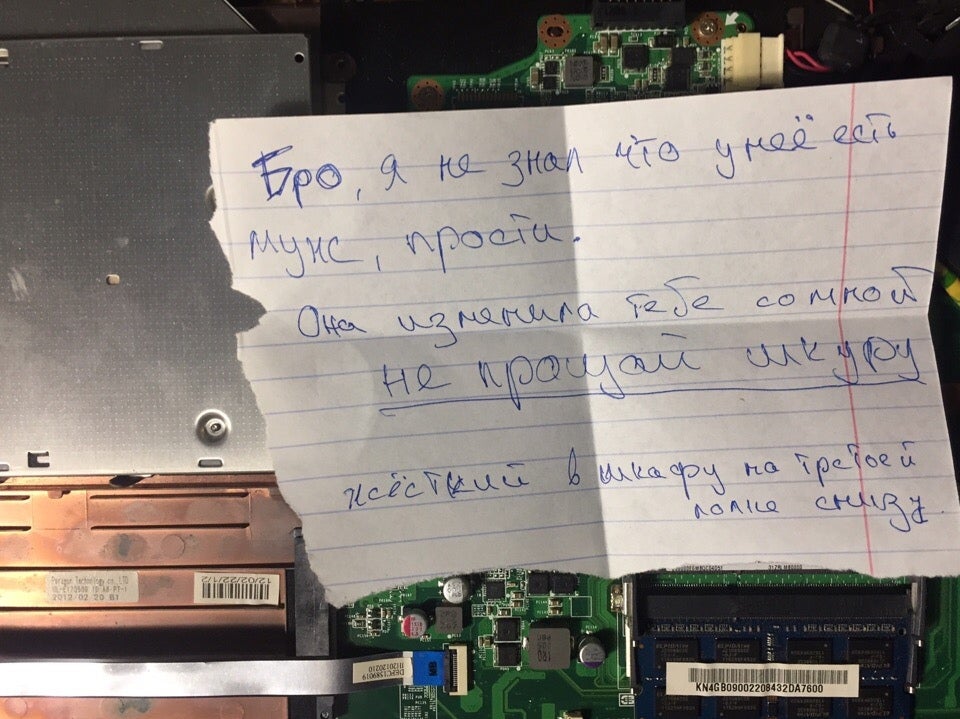 Бро, я не знал что у неё есть
муж, прости.
Она изменила тебе со мной
не прощай шкуру
жёсткий в шкафу на третьей
полке снизу.
Paragon Technology co., LTD
2012/02/20 B1
12/02/22/1/2
DEFC1389019
1120120210
KN4GB09002208432DA7600